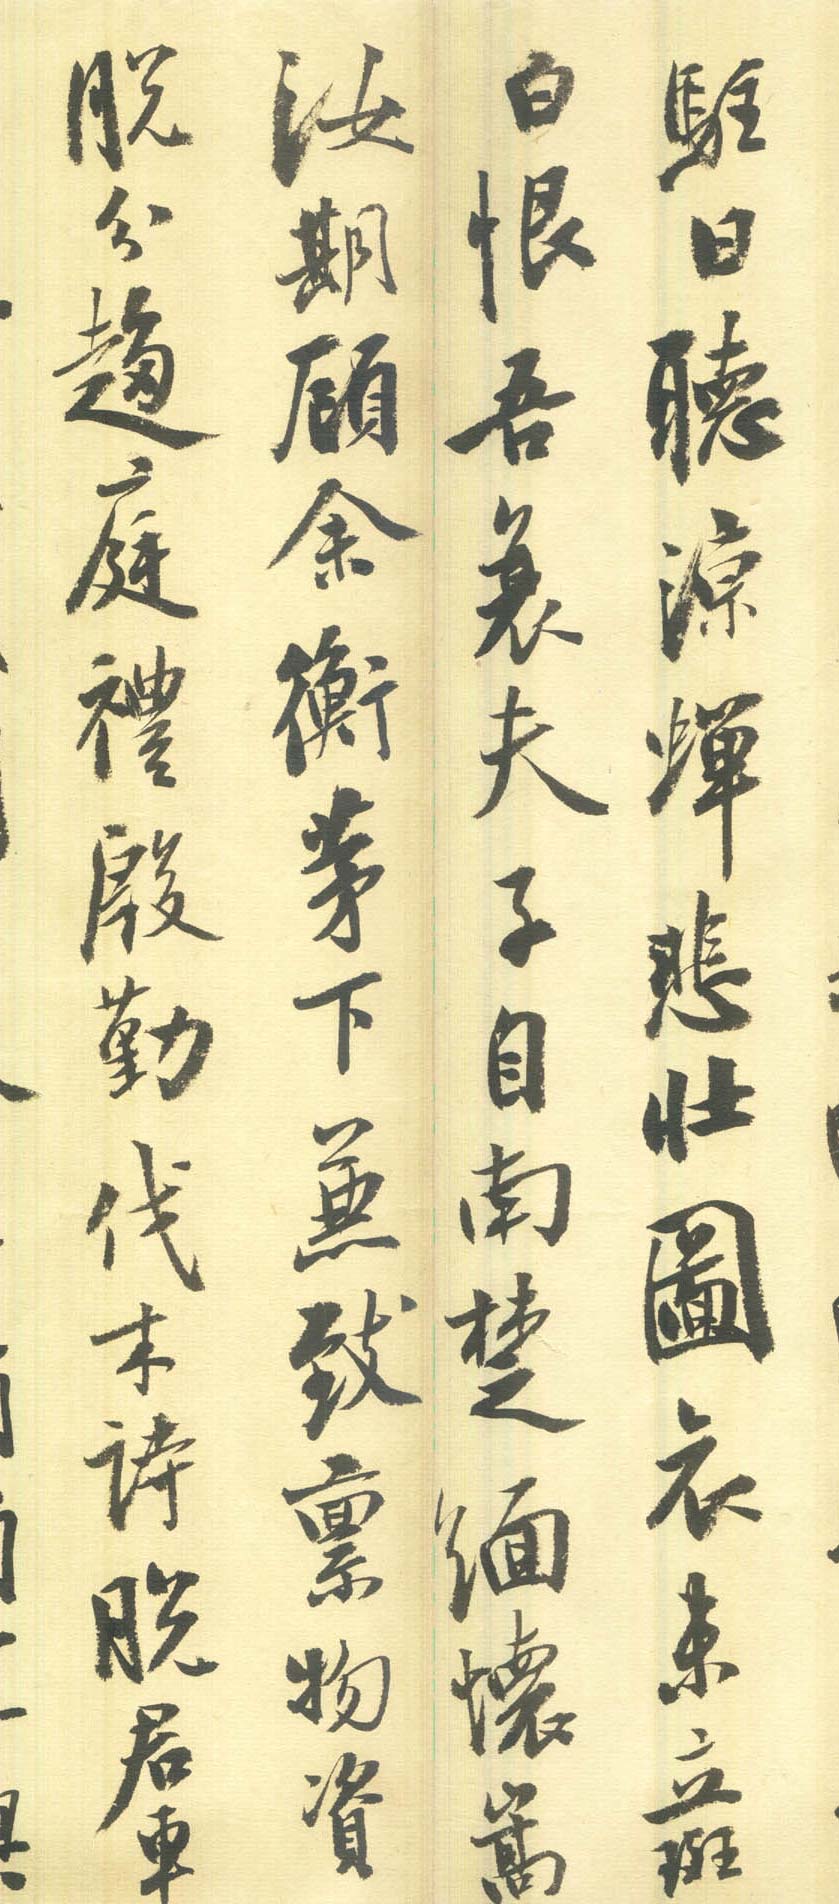 駐日聽涼蟬悲壯圖衣未立斑
白恨吾衰夫子自南楚緬懷嵩
汝期顧余衡茅下兼致稟物資
脫分趨庭禮殷勤伐木詩脫君車